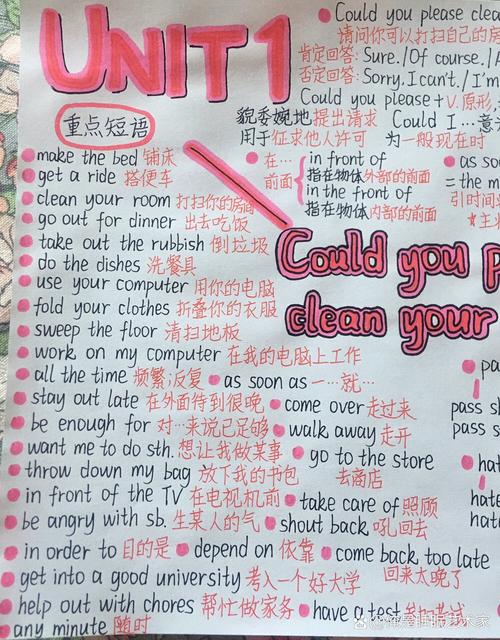 UNIT 1
Could you please clea
请问你可以打扫自己的房
肯定回答: Sure./Of course./A
否定回答: Sorry, I can't./I'm
Could you please + V.原形
貌委婉地提出请求 Could I…意
用于征求他人许可 为一般现在时
重点短语
make the bed 铺床
get a ride 搭便车
clean your room 打扫你的房间
go out for dinner 出去吃饭
take out the rubbish 倒垃圾
do the dishes 洗餐具
use your computer 用你的电脑
fold your clothes 折叠你的衣服
sweep the floor 清扫地板
work on my computer 在我的电脑上工作
all the time 频繁;反复
as soon as 一…就…
stay out late 在外面待到很晚
come over 走过来
be enough for 对…来说已足够
walk away 走开
want me to do sth. 想让我做某事
go to the store
去商店
throw down my bag 放下我的书包
in front of the TV 在电视机前
take care of 照顾
be angry with sb. 生某人的气
shout back 吼回去
in order to 目的是
depend on 依靠
come back too late
回来太晚了
get into a good university 考入一个好大学
help out with chores 帮忙做家务
have a test 参加考试
any minute 随时
在…
前面
in front of
指在物体外部的前面
in the front of
指在物体内部的前面
as so
= the m
引时间
★主
Could you p
clean your
pa
pass s
pass s
hat
hate
hate